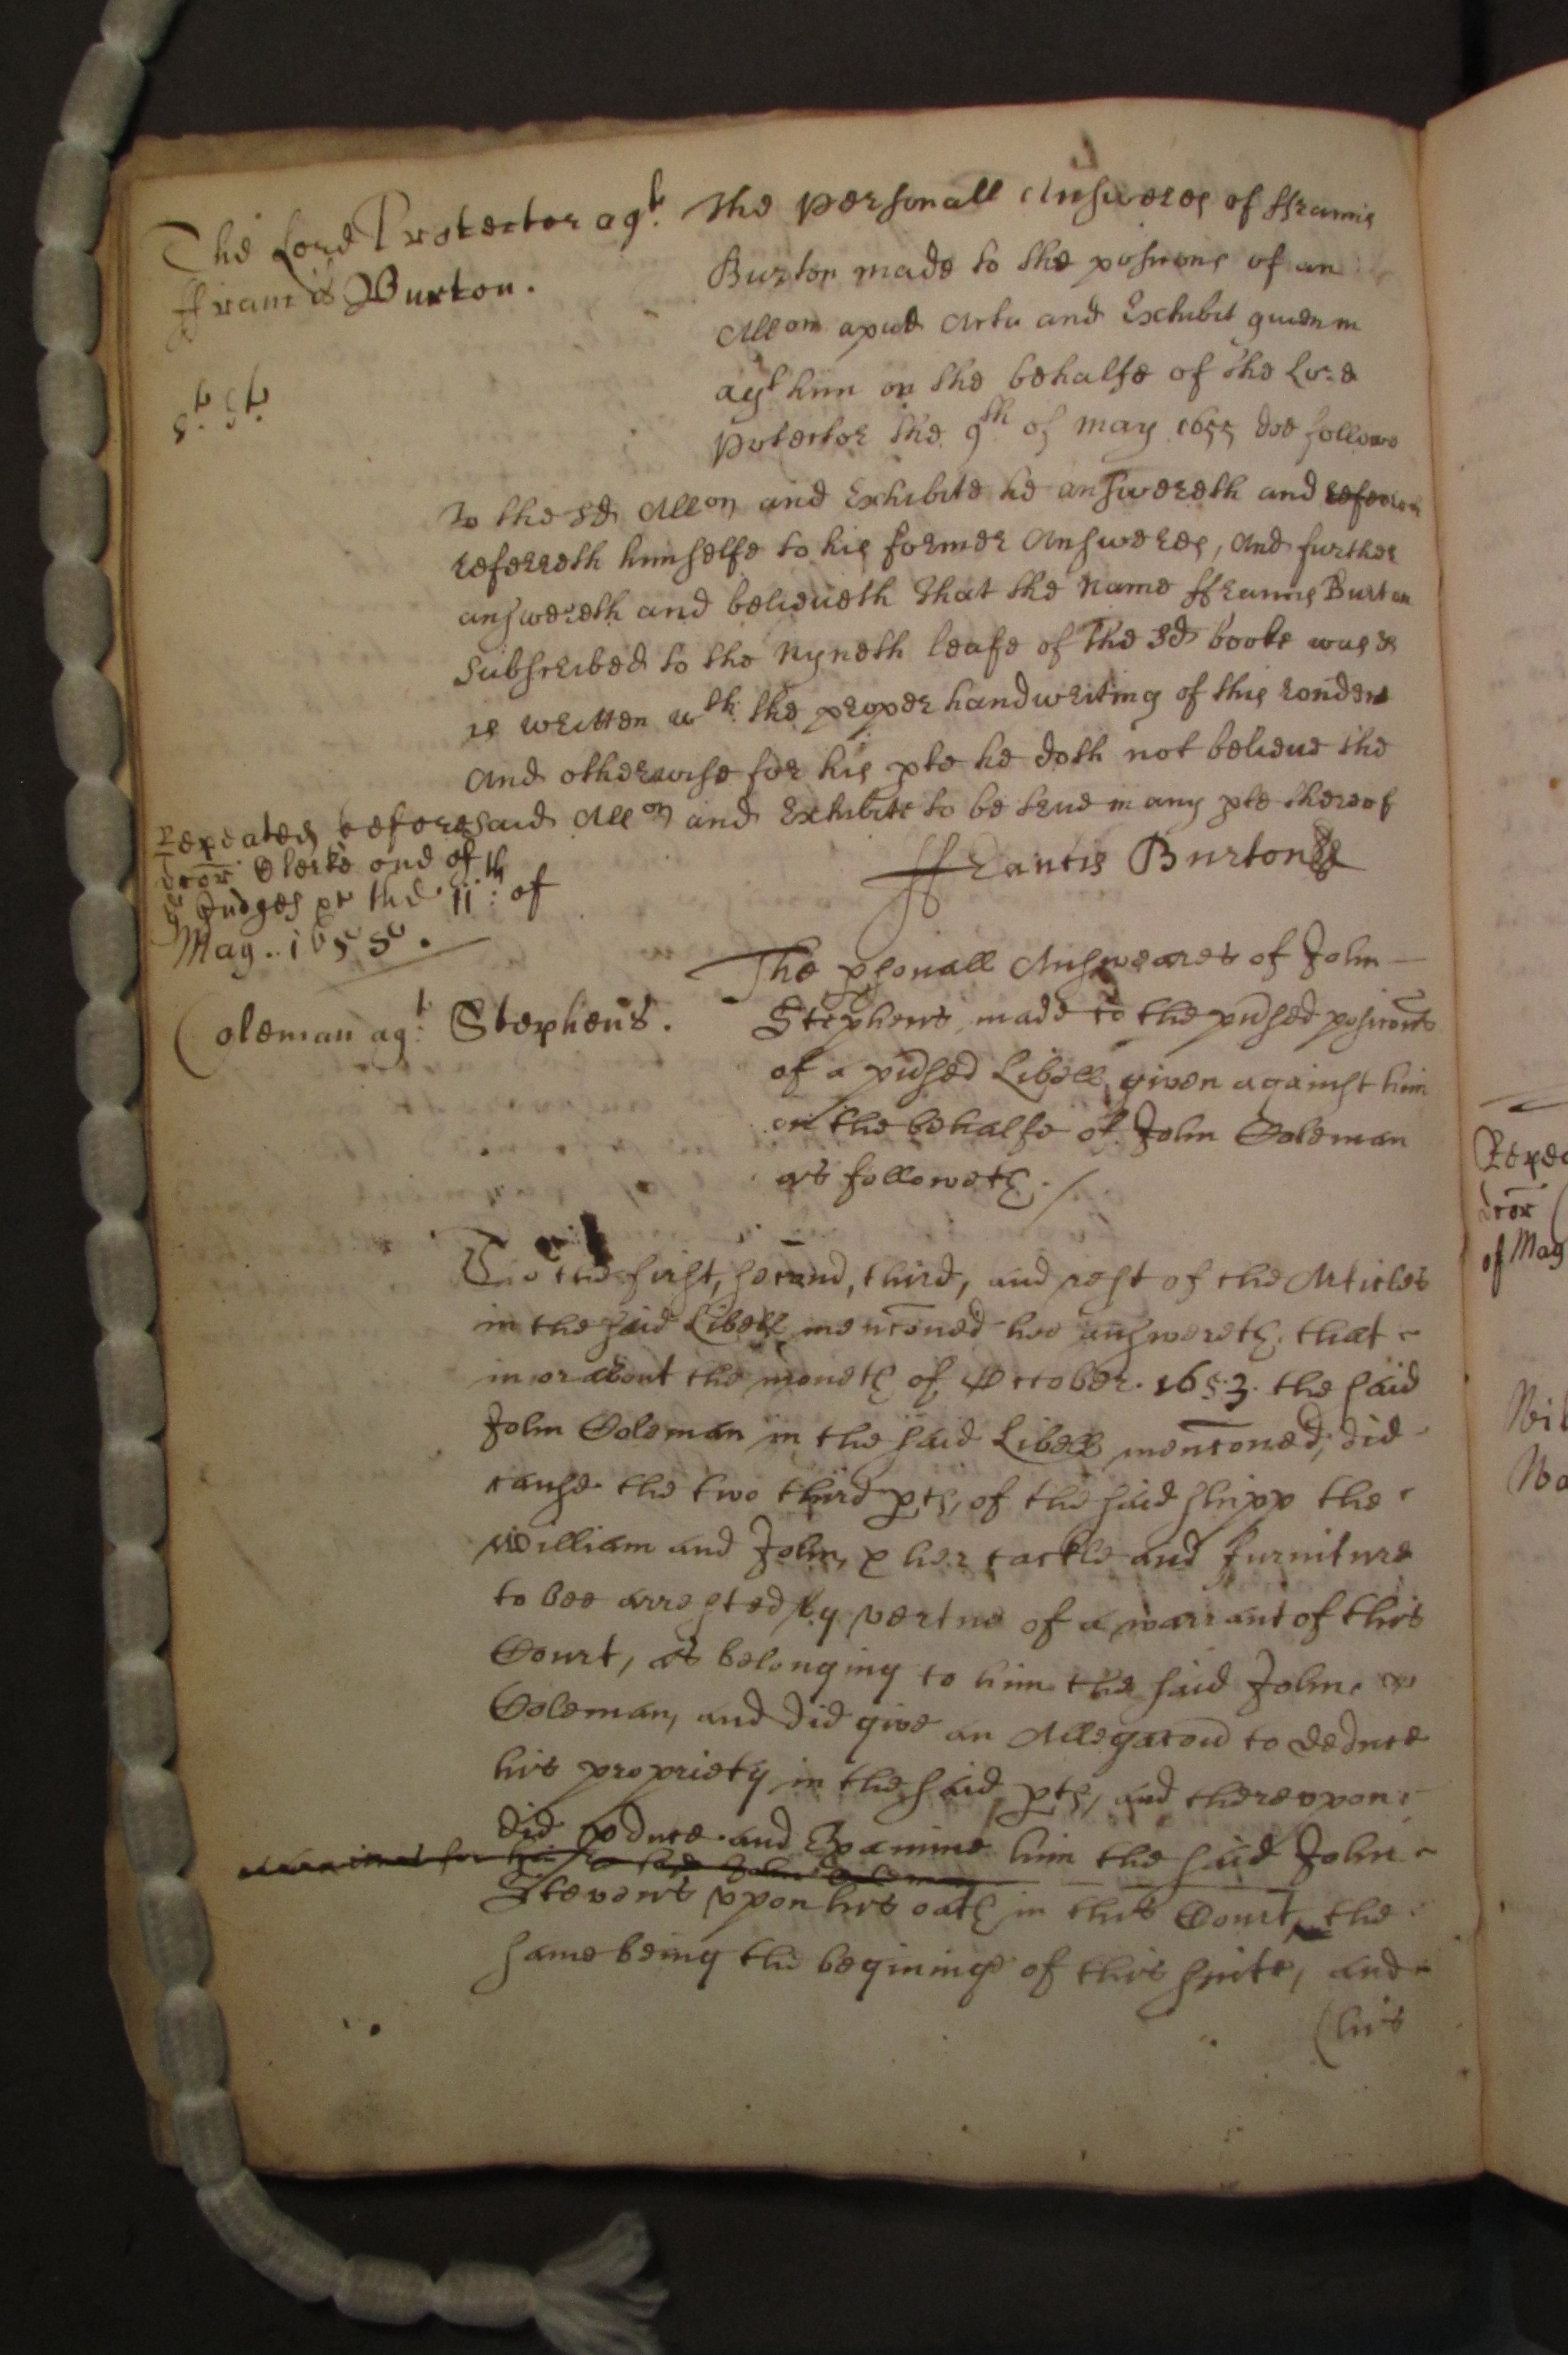 The Lord Protector agt.
ffrancis Burton.
The Personall Answeres of ffrancis
Burton made to the posicons of an
Allon apud Acta and Exhibit giuen in
agt him on the behalfe of the Lord
Protector the 9th of May 1655 doe followe
To the sd Allon and Exhibite he answereth and
referreth himselfe to his former Answeres, And further
answereth and belieueth That the Name ffrancis Burton
Subscribed to the Nyneth leafe of the sd booke was &
is written wth the proper handwriting of this rondent
And otherwise for his pte he doth not belieue the
said Allon and Exhibite to be true in any pte thereof
ffrancis Burton
Repeated before
dcor Clerke one of
ye Judges pr the 11th of
May. 1655.
Coleman agt. Stephens.
The psonall Answeares of John
Stephens made to the prdsed posicons
of a prdsed Libell given against him
on the behalfe of John Coleman
as followeth.
To the first, second, third, and rest of the Articles
in the said Libell menconed hee answereth that
in or about the moneth of October. 1653. the said
John Coleman in the said Libell menconed, did
cause the two third pts, of the said shipp the
William and John, & her tackle and furniture
to bee arrested by vertue of a warrant of this
Court, as belonging to him the said John
Coleman, and did give an Allegacon to deduce
his propriety in the said pts, and thereupon
did pduce and Examine him the said John
Stevens upon his oath in this Court, the
same being the begininge of this suite, and
(his
Repea
dcor
of May
Wil